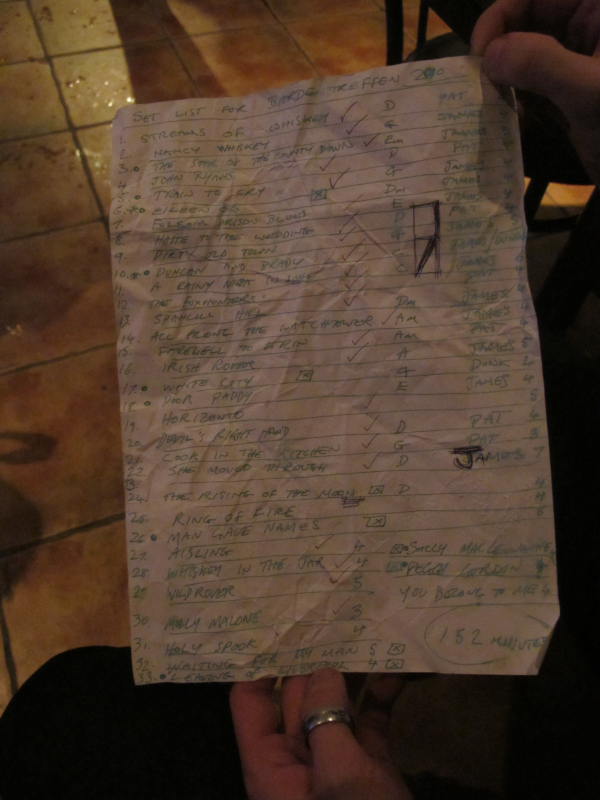 SET LIST FOR BARDENTREFFEN
1. STREAMS OF WHISKEY ✓ D PAT
2. NANCY WHISKEY ✓ G JAMES
3. THE STAR OF THE COUNTY DOWN ✓ Em JAMES
4. JOHN RYANS D PAT
5. TRAIN TO ✓ G JAMES
6. EILEEN Dm JAMES
7. FOLSOM PRISON BLUES E PAT
8. HASTE TO THE WEDDING D
9. DIRTY OLD TOWN ✓ G JAMES
10. DUNCAN AND BRADY ✓
11. A RAINY NIGHT IN SOHO ✓ C
12. THE
13. SPANCILL HILL Dm JAMES
14. ALL ALONG THE WATCHTOWER ✓ Am JAMES
15. FAREWELL TO ERIN Am PAT
16. IRISH ROVER ✓ A JAMES 5
17. WHITE CITY G
18. POOR PADDY E JAMES 4
19. HORIZONTE 5
20. DEVIL'S RIGHT HAND ✓ D PAT 4
21. COOK IN THE KITCHEN ✓ G PAT 3
22. SHE MOVED THROUGH ✓ D JAMES 7
24. THE RISING OF THE MOON D 4
25. RING OF FIRE 4
26. MAN GAVE NAMES
27. AISLING ✓ 4 SALLY MACLENNANE
28. WHISKEY IN THE JAR ✓ 4 PEGGY GORDON
29. WILD ROVER 5 YOU BELONG TO ME 4
30. MOLLY MALONE ✓ 3
31. HOLY SPOOK 4 152 MINUTES
32. WAITING FOR MY MAN 5
33. LEAVING OF LIVERPOOL 4